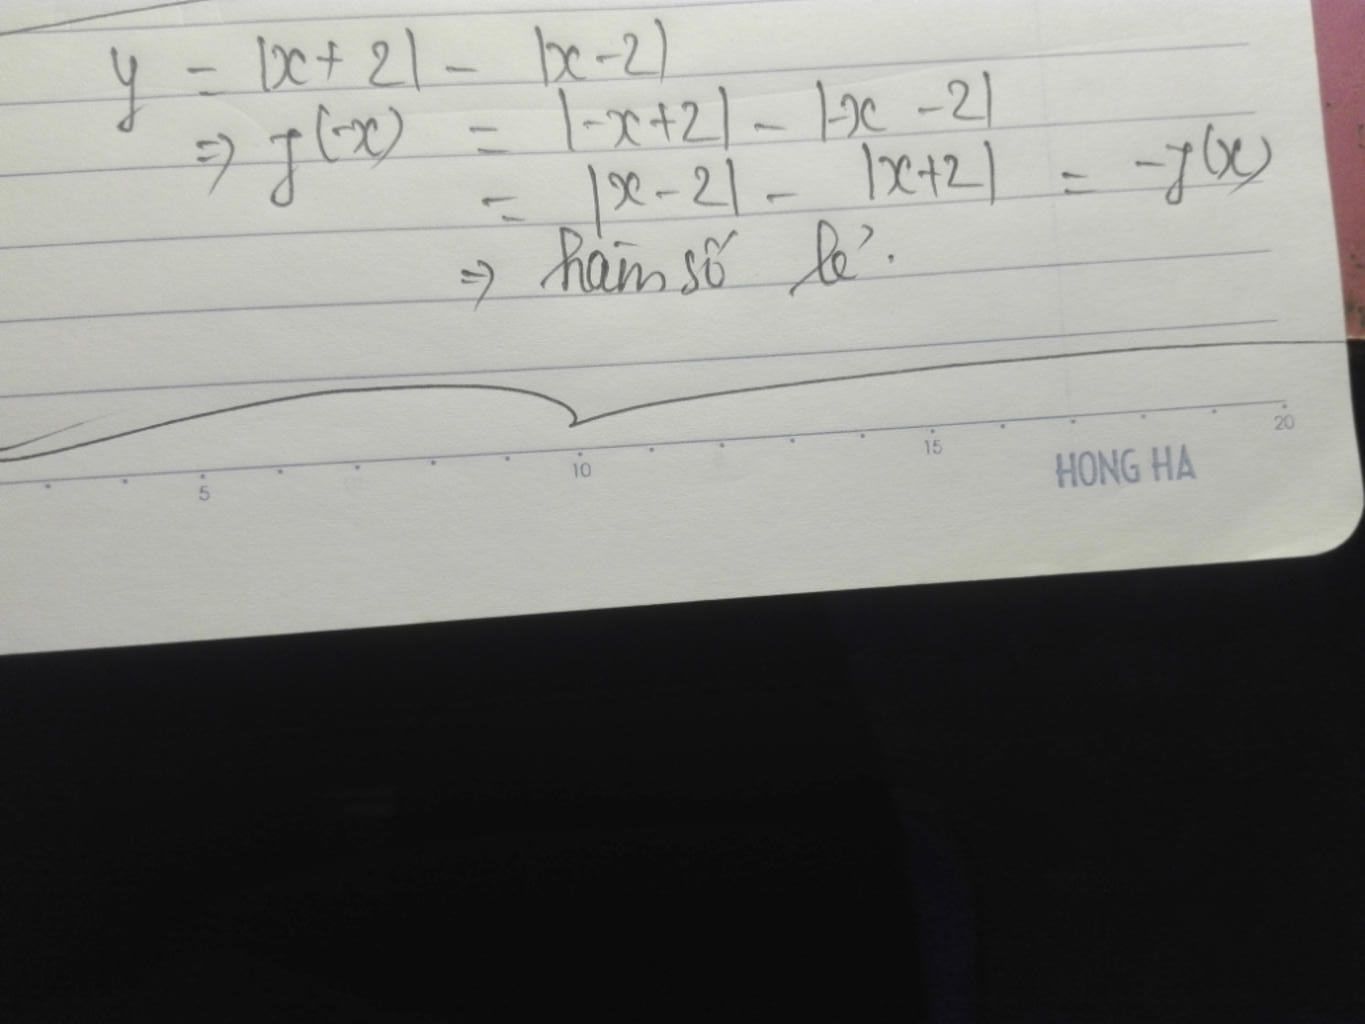 y = |x+2| - |x-2|
=> y(-x) = |-x+2| - |-x-2|
= |x-2| - |x+2| = -y(x)
=> hàm số lẻ.
5 10 15 20
HONG HA